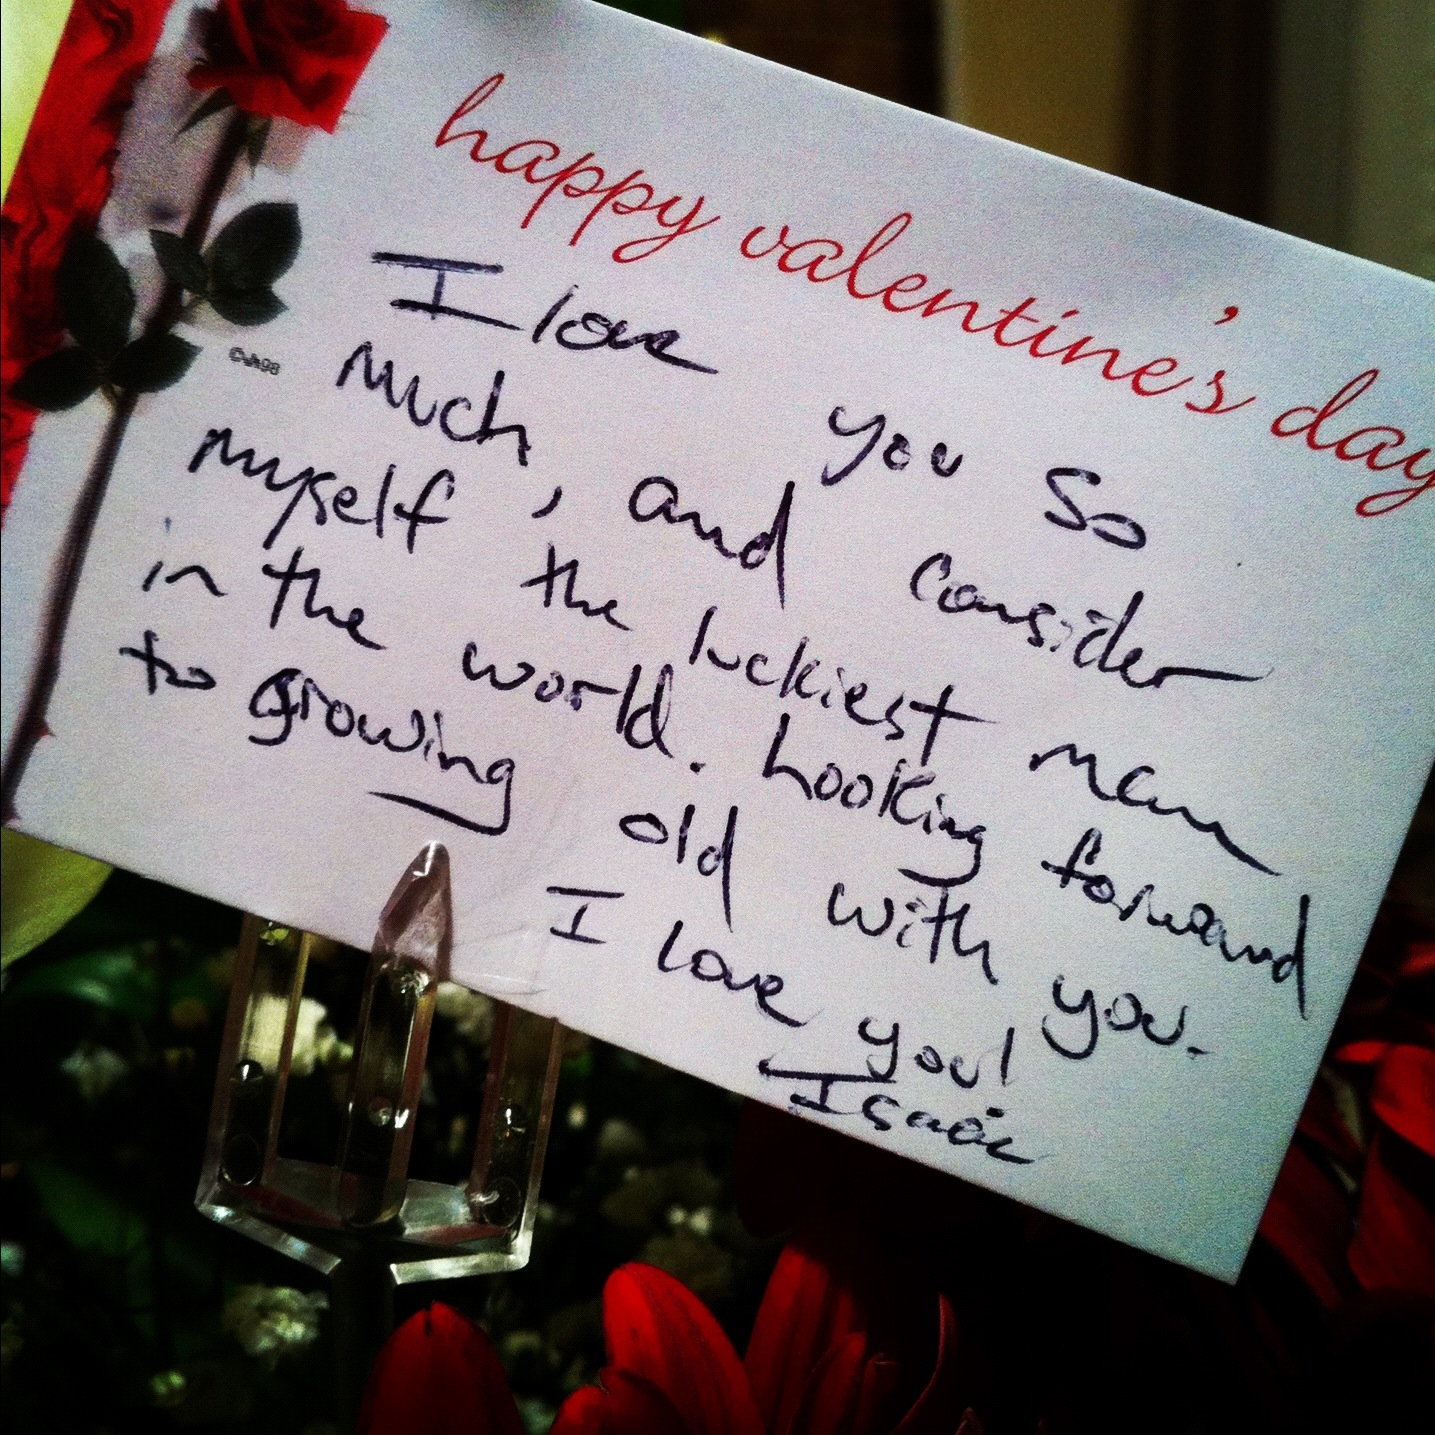 happy valentine's day
I love you so
much, and consider
myself the luckiest man
in the world. Looking forward
to growing old with you.
I love you!
Isaac